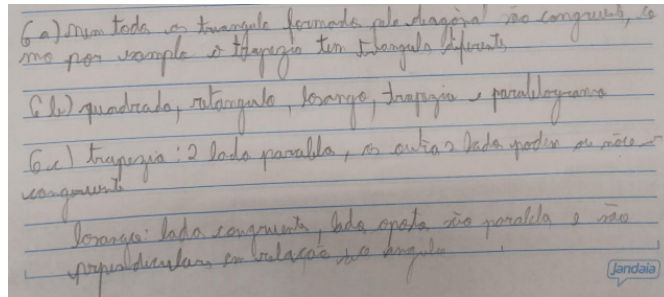 6 a) nem todo os triangulo formado pela diagonal são congruente, co
mo por exemplo o trapezio tem triangulo diferente
6 b) quadrado, retangulo, losango, trapezio e paralelogramo
6 c) trapezio: 2 lado paralelo, os outro 2 lado podem ou não
congruente
losango: lado congruente, lado oposto são paralelo e são
perpendiculares em relação ao angulo
Jandaia